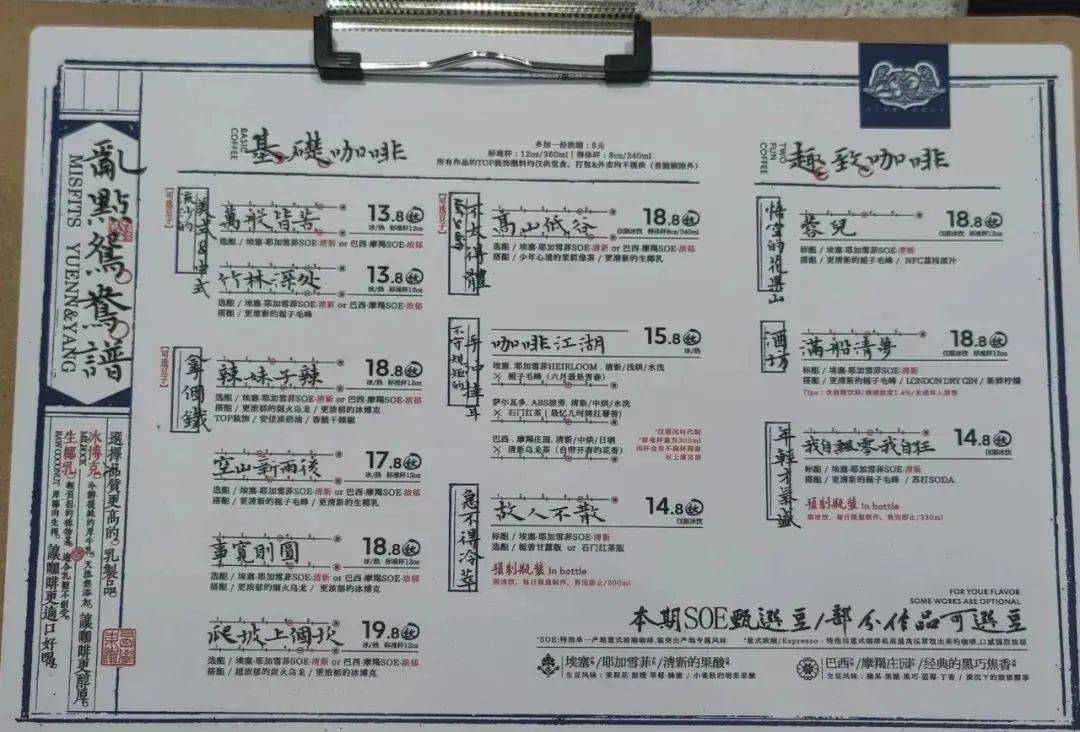 亂點鴛鴦譜
MISFITS YUENN&YANG
選擇品質更高的乳製品
冰博克
冷鮮提純的厚牛乳,天然無添加,讓咖啡更醇厚
生椰乳
RAW COCONUT
讓咖啡更適口好喝
BASIC COFFEE
基礎咖啡
多加一份浓缩:5元
标准杯:12oz/360ml | 得体杯:8oz/240ml
所有作品的TOP装饰燃料均仅供堂食,打包&外卖均不提供(香脆椒除外)
【可选豆子】
美式&中式
萬般皆苦 13.8
冰/热 标准杯12oz
选配 / 埃塞·耶加雪菲SOE·清新 or 巴西·摩羯SOE·浓郁
竹林深处 13.8
冰/热 标准杯12oz
选配 / 埃塞·耶加雪菲SOE·清新 or 巴西·摩羯SOE·浓郁
搭配 / 更清新的栀子毛峰
【可选豆子】
拿個鐵
辣妹子辣 18.8
冰/热 标准杯12oz
选配 / 埃塞·耶加雪菲SOE·清新 or 巴西·摩羯SOE·浓郁
搭配 / 更浓郁的烟火乌龙 / 更浓郁的冰博克
TOP装饰 / 安佳淡奶油 / 香脆干辣椒
空山新雨後 17.8
冰/热 标准杯12oz
选配 / 埃塞·耶加雪菲SOE·清新 or 巴西·摩羯SOE·浓郁
搭配 / 更清新的栀子毛峰 / 更清新的生椰乳
事寬則圓 18.8
冰/热 标准杯12oz
选配 / 埃塞·耶加雪菲SOE·清新 or 巴西·摩羯SOE·浓郁
搭配 / 更浓郁的烟火乌龙 / 更浓郁的冰博克
爬坡上個坎 19.8
冰/热 标准杯12oz
选配 / 埃塞·耶加雪菲SOE·清新 or 巴西·摩羯SOE·浓郁
搭配 / 超浓郁的炭火乌龙 / 更浓郁的冰博克
【可选豆子】
不做得體
高山低谷 18.8
仅限冰饮 得体杯8oz/240ml
选配 / 埃塞·耶加雪菲SOE·清新 or 巴西·摩羯SOE·浓郁
搭配 / 少年心境的茉莉绿茶 / 更清新的生椰乳
不守規矩的
手中挂耳
咖啡江湖 15.8
冰/热
埃塞.耶加雪菲HEIRLOOM.清新/浅烘/水洗
× 栀子毛峰(六月最是青春)
萨尔瓦多.ABS波旁.清新/中烘/水洗
× 石门红茶(最忆儿时烤红薯香)
巴西.摩羯庄园.清新/中烘/日晒
× 清新乌龙茶(自带开春的花香)
*仅提供时代制
*标准杯量为300ml
急不得冷萃
故人不散 14.8
仅限冰饮
标配 / 埃塞·耶加雪菲SOE·清新
选配 / 栀香甘露版 or 石门红茶版
預制瓶裝 In bottle
限冰饮,每日限量制作,售完即止/200ml
TWO FUN COFFEE
趣致咖啡
悟空的花果山
蓉兒 18.8
仅限冰饮 标准杯12oz
标配 / 埃塞·耶加雪菲SOE·清新
搭配 / 更清新的栀子毛峰 / NFC荔枝原汁
酒坊
滿船清夢 18.8
仅限冰饮 标准杯12oz
标配 / 埃塞·耶加雪菲SOE·清新
搭配 / 更清新的栀子毛峰 / LONDON DRY GIN / 新鲜柠檬
Tips:含酒精饮料/酒精浓度1.4%/未成年人禁售
年輕才氣盛
我自飄零我自狂 14.8
仅限冰饮
标配 / 埃塞·耶加雪菲SOE·清新
搭配 / 更清新的栀子毛峰 / 苏打SODA
預制瓶裝 In bottle
限冰饮,每日限量制作,售完即止/330ml
FOR YOUR FLAVOR
SOME WORKS ARE OPTIONAL
本期SOE甄選豆/部分作品可選豆
*SOE:特指单一产地意式浓缩咖啡,突出产地专属风味 *意式浓缩/Espresso:特指用意式咖啡机高温高压萃取出来的咖啡,口感强烈浓郁
埃塞/耶加雪菲/清新的果酸
生豆风味:茉莉花·甜橙·草莓·蜂蜜 / 小雀跃的明亮果酸
巴西/摩羯庄园/经典的黑巧焦香
生豆风味:榛果·焦糖·黑巧·蓝莓·丁香 / 深沉下的浓郁醇厚